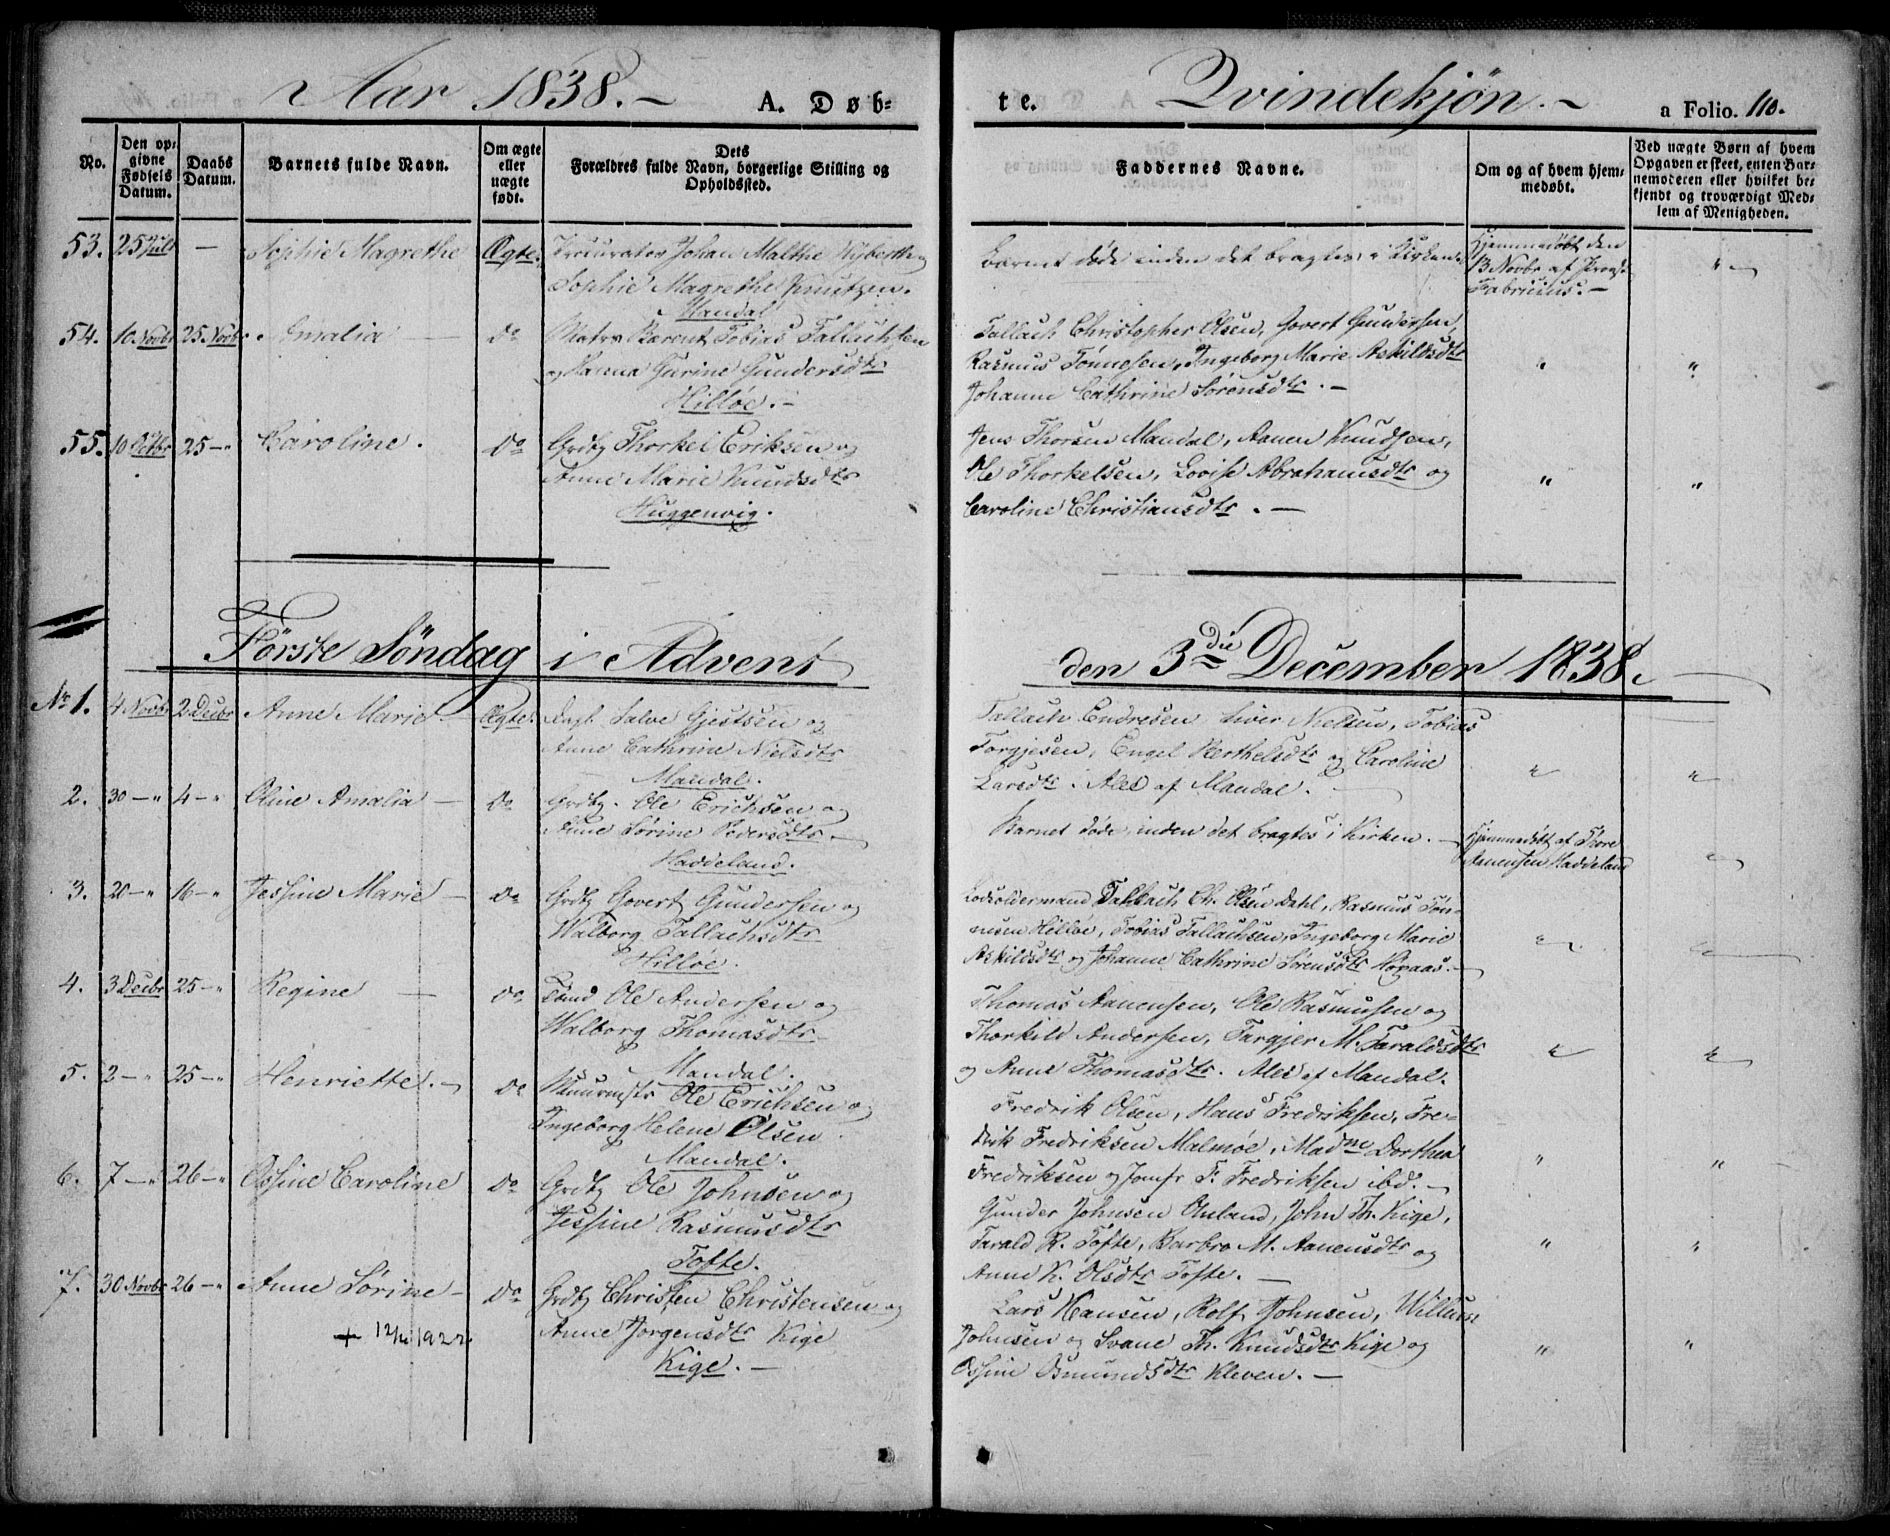 Aar 1838.
A. Døb-
te.
Qvindekjøn.
a Folio. 110.
No.
Den op-
givne
Fødsels
Datum.
Daabs
Datum.
Barnets fulde Navn.
Om ægte
eller
uægte
født.
Dets
Forældres fulde Navn, borgerlige Stilling og
Opholdssted.
Faddernes Navne.
Om og af hvem hjem-
medøbt.
Ved uægte Børn af hvem
Opgaven er skeet, enten Bar-
nemoderen eller hvilket be-
kjendt og troværdigt Med-
lem af Menigheden.
53. 25 Juli — Sophie Magrethe Ægte. Procurator Johan Malthe og
Sophie Magrethe Knutzen.
Mandal
Barnet døde inden det bragtes i Kirken.
Hjemmedøbt den
13 Novbr af
Fabricius. —
54. 10 Novbr 25 Novbr Amalia — do Matrs Barent Tobias Tallachsen
og Hanna Gurine Gundersdtr
Hilløe. —
Tallach Christopher Olsen, Govert Gundersen,
Rasmus Tønnesen, Ingeborg Marie Askildsdtr
Johanne Cathrine Sørensdtr. —
55. 10 Octbr 25 — " Caroline. do Grdbg Thorkel Eriksen og
Anne Marie Knudsdtr
Huggenvig.
Jens Thorsen Mandal, Aanen Knudsen,
Ole Thorkelsen, Lovise Abrahamsdtr og
Caroline Christiansdtr. —
Første Søndag i Advent
den 3die December 1838.
No 1. 4 Novbr 2 Decbr Anne Marie. Ægte. Dagl. Salve Gjestsen og
Anne Cathrine Nielsdtr
Mandal.
Tallach Endresen, Iver Nielsen, Tobias
Torgjesen, Engel Berthelsdtr og Caroline
Larsdtr. Ales af Mandal.
2. 30 — " 4 — " Oline Amalia — do Grdbg. Ole Erichsen og
Anne Sørine Pedersdtr. —
Haddeland.
Barnet døde inden det bragtes i Kirken. —
Hjemmedøbt af Tore
Aanensen Haddeland
3. 20 — " 16 — " Jessine Marie — do Grdbg Govert Gundersen og
Walborg Tallachsdtr
Hilløe.
Lodsoldermand Tallach Ch. Olsen Dahl, Rasmus Tøn-
nesen Hilløe, Tobias Tallachsen, Ingeborg Marie
Askildsdtr og Johanne Cathrine Sørensdtr Høgaas. —
4. 3 Decbr 25 — " Regine — do Tømd Ole Andersen og
Walborg Thomasdtr
Mandal.
Thomas Aanensen, Ole Rasmusen og
Thorkild Andersen, Targjer M. Taraldsdtr
og Anne Thomasdtr. Ales af Mandal.
5. 2 — " 25 — " Henriette. — do Muurmstr Ole Erichsen og
Ingeborg Helene Olsen.
Mandal.
Fredrik Olsen, Hans Fredriksen, Fre-
drik Fredriksen Malmøe, Madme Dorthea
Fredriksen og Jomfr F. Fredriksen ibd. —
6. 7 — " 26 — " Ossine Caroline do Grdbg Ole Johnsen og
Jessine Rasmusdtr
Tofte.
Gunder Johnsen Omland, John Th. Kige,
Tarald R. Tofte, Barbro M. Aanensdtr og
Anne K. Olsdtr Tofte. —
7. 30 Novbr 26 — " Anne Sørine — do Grdbg Christen Christensen og
Anne Jørgensdtr Kige
Kige. —
+ 12/11 1922
Lars Hansen, Rolf Johnsen, Willum
Johnsen og Svane Th. Knudsdtr Kige og
Ossine Osmundsdtr Kleven. —